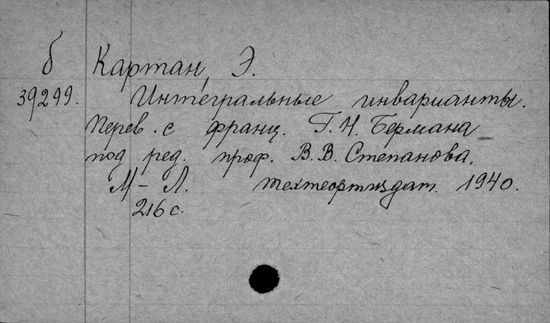 б Картан, Э.
39299. Интегральные инварианты.
Перев. с франц. Г.Н. Бермана
под ред. проф. В.В. Степанова.
М – Л. техтеортиздат. 1940.
216 с.